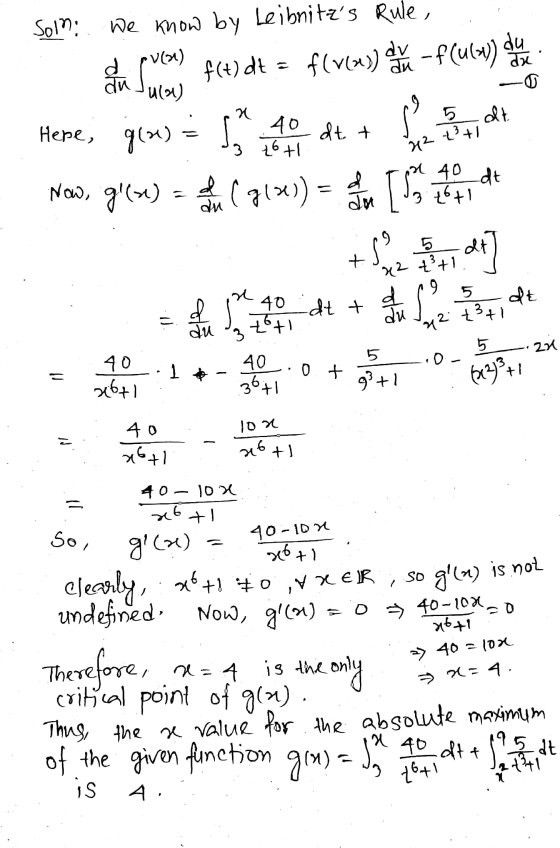 Solⁿ: We know by Leibnitz's Rule,
d/dx ∫_{u(x)}^{v(x)} f(t) dt = f(v(x)) dv/dx - f(u(x)) du/dx. —①
Here, g(x) = ∫_3^x 40/(t^6+1) dt + ∫_{x^2}^9 5/(t^3+1) dt
Now, g'(x) = d/dx (g(x)) = d/dx [∫_3^x 40/(t^6+1) dt
+ ∫_{x^2}^9 5/(t^3+1) dt]
= d/dx ∫_3^x 40/(t^6+1) dt + d/dx ∫_{x^2}^9 5/(t^3+1) dt
= 40/(x^6+1) · 1 - 40/(3^6+1) · 0 + 5/(9^3+1) · 0 - 5/((x^2)^3+1) · 2x
= 40/(x^6+1) - 10x/(x^6+1)
= (40-10x)/(x^6+1)
So, g'(x) = (40-10x)/(x^6+1).
Clearly, x^6+1 ≠ 0, ∀ x ∈ ℝ, so g'(x) is not
undefined. Now, g'(x) = 0 ⇒ (40-10x)/(x^6+1) = 0
⇒ 40 = 10x
⇒ x = 4.
Therefore, x = 4 is the only
critical point of g(x).
Thus, the x value for the absolute maximum
of the given function g(x) = ∫_3^x 40/(t^6+1) dt + ∫_{x^2}^9 5/(t^3+1) dt
is 4.